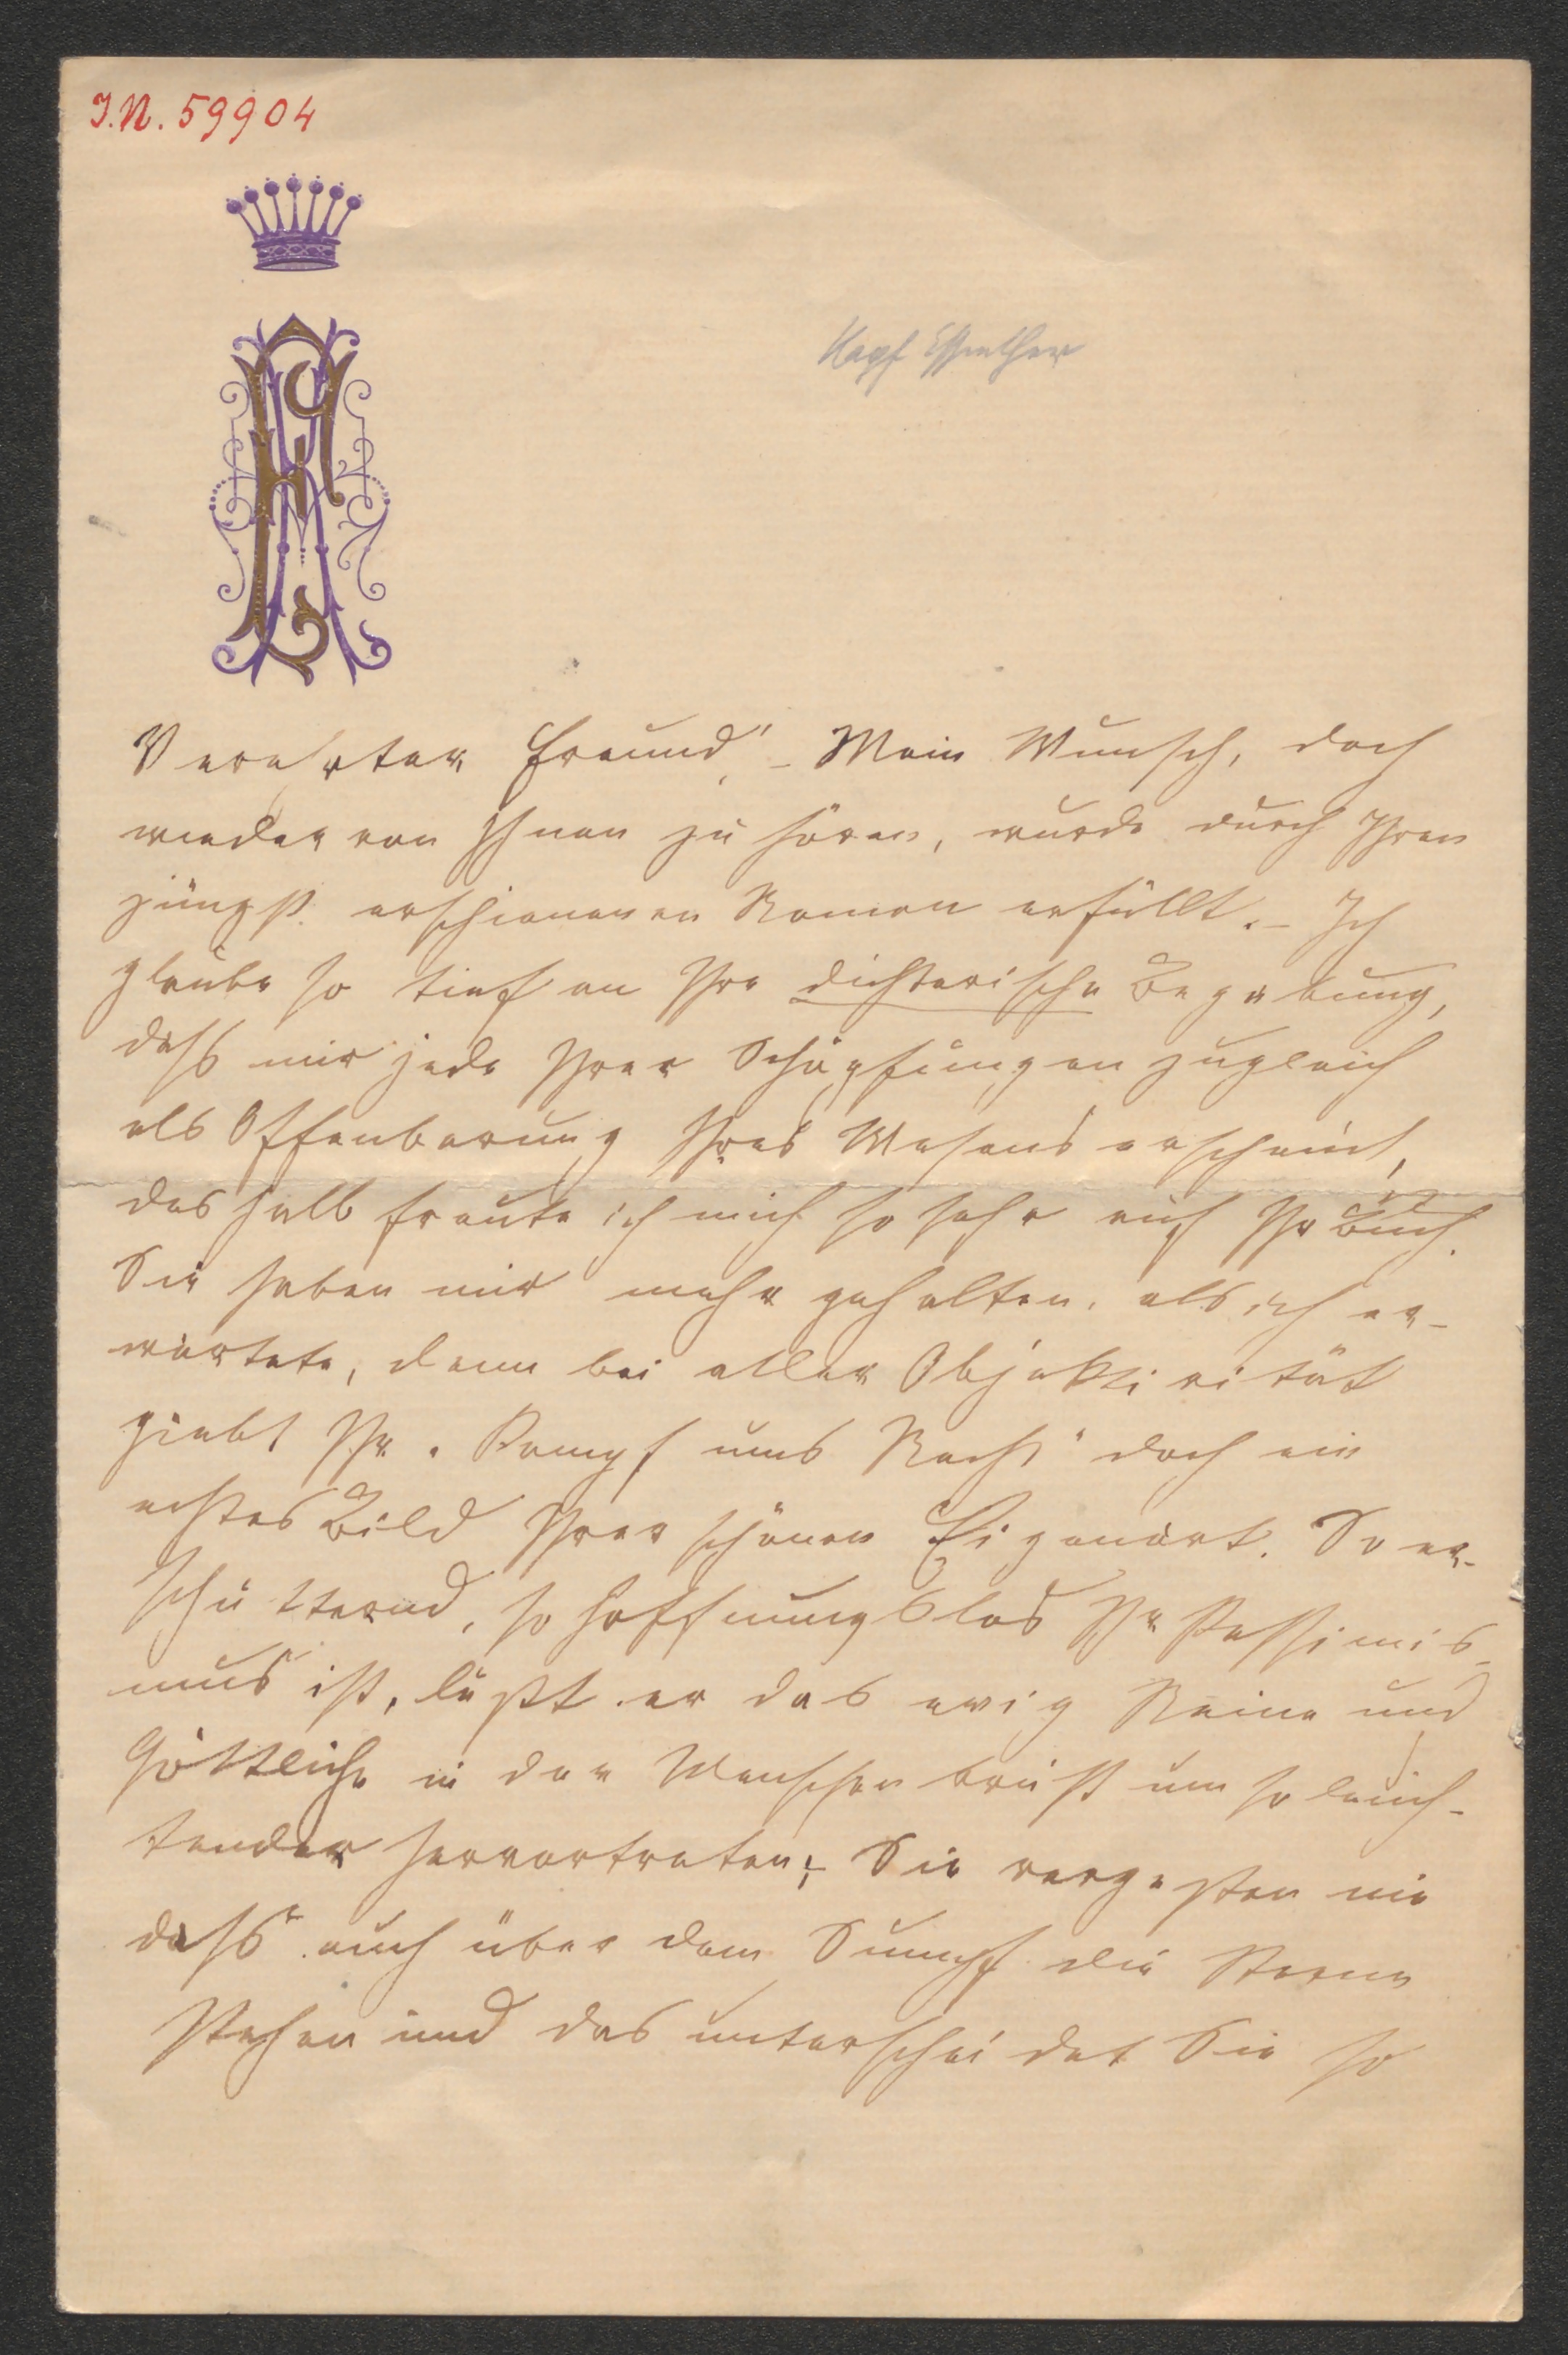 I.N. 59904
Kapf Essenther
Verehrter Freund! – Mein Wunsch, doch
wieder von Ihnen zu hören, wurde durch Ihren
jüngst erschienenen Roman erfüllt. – Ich
glaube so tief an Ihre dichterische Begabung,
daß mir jede Ihrer Schöpfungen zugleich
als Offenbarung Ihres Wesens erscheint,
deshalb freute ich mich so sehr auf Ihr Buch.
Sie haben mir mehr gehalten, als ich er-
wartete, denn bei aller Objektivität
giebt Ihr „Kampf ums Recht" doch ein
echtes Bild Ihrer schönen Eigenart. So er-
schütternd, so hoffnungslos Ihr Pessimis-
mus ist, läßt er das ewig Reine und
Göttliche in der Menschenbrust um so leuch-
tender hervortreten; Sie vergessen nie
daß auch über dem Sumpf die Sterne
stehen und das unterscheidet Sie so